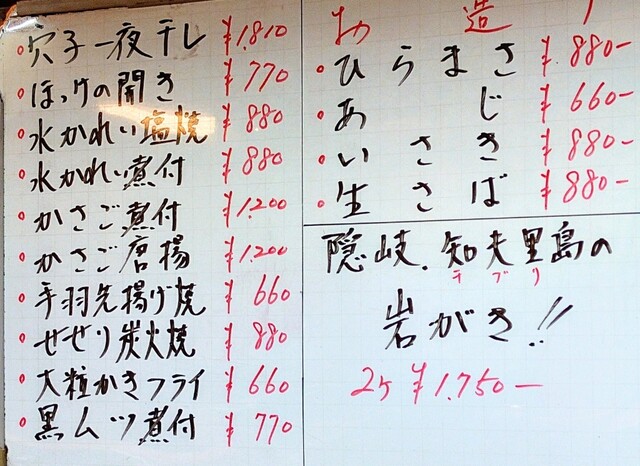 穴子一夜干し ¥1,810
ほっけの開き ¥770
水かれい塩焼 ¥880
水かれい煮付 ¥880
かさご煮付 ¥1,200
かさご唐揚 ¥1,200
手羽先揚げ焼 ¥660
せせり炭火焼 ¥880
大粒かきフライ ¥660
黒ムツ煮付 ¥770
お造り
ひらまさ ¥880-
あじ ¥660-
いさき ¥880-
生さば ¥880-
隠岐、知夫里島の
チブリ
岩がき!!
2ケ ¥1,750-